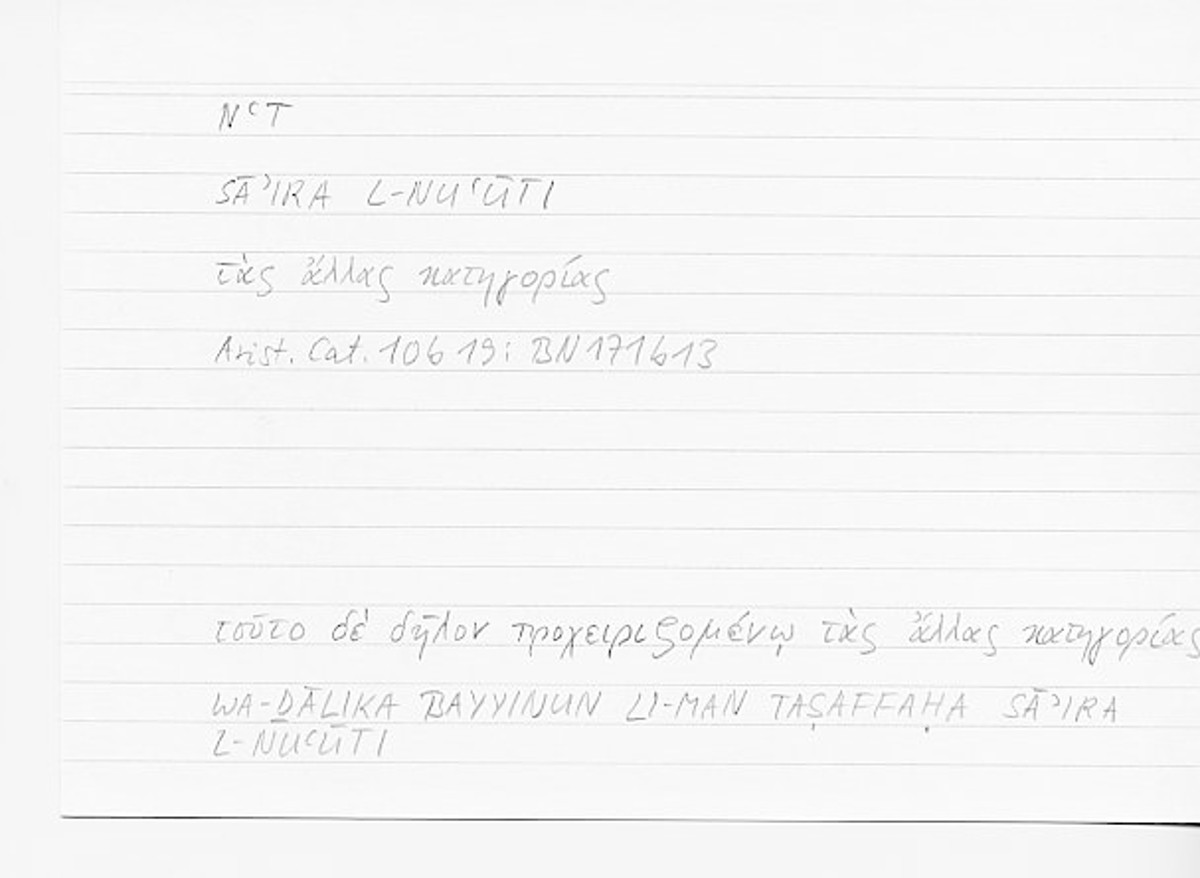 NʿT
SĀʾIRA L-NUʿŪTI
τὰς ἄλλας κατηγορίας
Arist. Cat. 10b19; BN171b13
τοῦτο δὲ δῆλον προχειριζομένῳ τὰς ἄλλας κατηγορίας
WA-ḎĀLIKA BAYYINUN LI-MAN TAṢAFFAḤA SĀʾIRA
L-NUʿŪTI